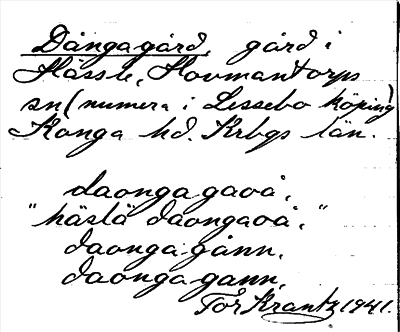 Dångagård, gård i
Hässle, Hovmantorps
sn (numera i Lessebo köping)
Konga hd. Krbgs län.
daonga gaoå,
"häslä daongaoå,"
daonga gånn,
daonga gann,
Tor Krantz 1941.